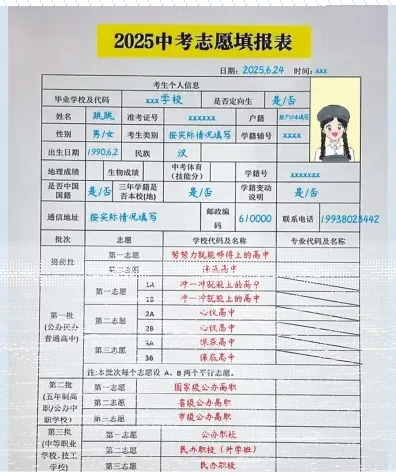 2025中考志愿填报表
日期：2025.6.24 时间：xxx
考生个人信息
毕业学校及代码 xxx学校 是否定向生 是/否
姓名 跳跳 准考证号 xxxxxx 户籍 按户口本填写
性别 男/女 考生类别 按实际情况填写 学籍辅号 xxxx
出生日期 1990.6.2 民族 汉
地理成绩 生物成绩 中考体育(技能分) 学籍号 xxxxxxx
是否中国国籍 是/否 三年学籍是否本校(地) 是/否 学籍变动说明 是/否
通信地址 按实际情况填写 邮政编码 610000 联系电话 19938023442
批次 志愿 学校代码及名称 专业代码及名称
提前批 第一志愿 努努力就能够得上的高中
第二志愿 保底高中
第一批(公办民办普通高中) 第一志愿 1A 冲一冲就能上的高中
1B 冲一冲就能上的高中
第二志愿 2A 心仪高中
2B 心仪高中
第三志愿 3A 保底高中
3B 保底高中
注:本批次每个志愿设 A、B 两个平行志愿。
第二批(五年制高职/公办中职学校) 第一志愿 国家级公办高职
第二志愿 省级公办高职
第三志愿 市级公办高职
第三批(中等职业学校、技工学校) 第一志愿 公办职校
第二志愿 民办职校（升学班）
第三志愿 民办职校